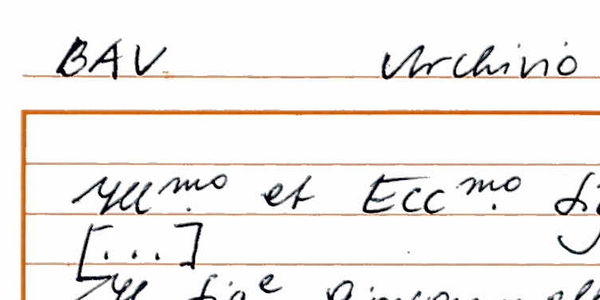 BAV Archivio
Ill^mo et Ecc^mo
[...]
Il Sig^e